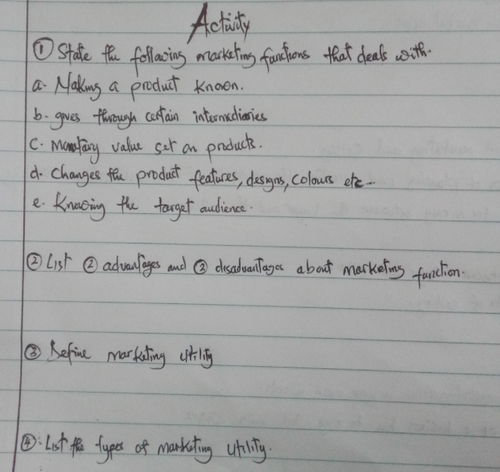 Activity
① State the following marketing functions that deals with.
a. Making a product known.
b. goes through certain intermediaries
c. Monetary value set on products.
d. Changes the product features, designs, colours etc-
e. Knowing the target audience.
② List ② advantages and ② disadvantages about marketing function.
③ Define marketing utility
④: List the types of marketing utility.